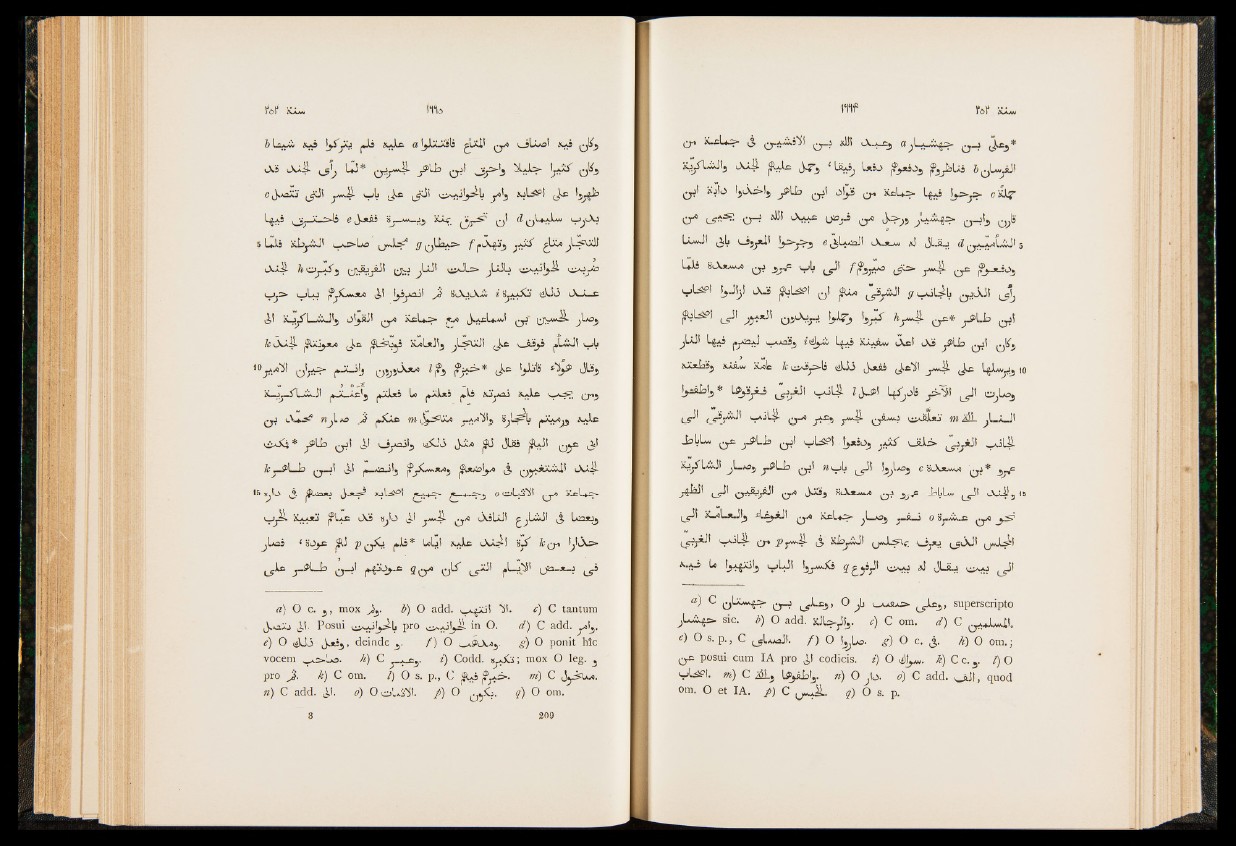 سنة ٢٥٢ ١٦٦۴
*وعلىّ بن جهشيار a وعبد الله بن الافشين فى جماعة من
الفرسان b فناظروهم ودفعوهم دفعا رفيقا، وحمل عليهم الجند والشاكريّة
حملة c جرحوا فيها جماعة من قوّاد ابن طاهر واخذوا دابّة ابن
قارن وابن جهشيار ورجل من فرض عبيد الله بن يحيى من
5 الشأميّين d يقال له سعد الضبابىّ e وجرحوا المعروف بابى السنا
ودفعوهم عن الجسر حتى صيّروهم f الى باب عمرو بن مسعدة فلمّا
رأى الذين بالجانب g الشرقىّ منهم ان اصحابهم قد ازالوا اصحاب
ابن طاهر *عن الجسر h كبّروا وحملوا يريدون العبور الى اصحابهم
وكان ابن طاهر قد اعدّ سفينة فيها شوك i وقصب ليضرم فيها النار
10 ويرسلها على الجسر الاعلى ففعل ذلك فاحرقت k عامّة سفنه وقطعته
وصارت الى الآخر فادركها اهل l الجانب الغربىّ فغرقوها *واطفئوا
النار اللّه m تعلّقت بسفن الجسر وعبر من الجانب الشرقىّ الى
الجانب الغربىّ خلف كثير ودفعوا اصحاب ابن طاهر عن ساباط
عمرو *بن مسعدة c وصاروا الى باب n ابن طاهر وصار الشاكريّة
15 والجند الى ساباط عمرو بن مسعدة وقتل من الفريقين الى الظهر
نحو من عشرة o نفر وصار جماعة من الغوغاء والعامّة الى
المجلس الذى يعرف بمجلس الشرطة فى الجسر p من الجانب الغربىّ
الى بيت يقال له بيت الرفوع q فكسروا الباب وانتهبوا ما فيه
a) C وعلى بن جهشتان, O وعلى بار, superscripto
جهشيار sic. b) O add. والرجالة. c) C om. d) C المسلمين.
e) O s. p., C الصنابى. f) O صاروا. g) O c. فى. h) O om.;
عن posui cum IA pro الى codicis. i) O سوك. k) C c. و. l) O
اصحاب. m) C واطفوها والله. n) O دار. o) C add. الف, quod
om. O et IA. p) C الحبس. q) O s. p.
سنة ٢٥٢ ١٦٦٥
وكان فيه اصناف من المتاع فاقتتلوا a عليه فلم يتركوا فيه شيئا b
وكان كثيرا جليلا واحرق ابن طاهر الجسرين *لمّا رأى الجند قد
ظهروا على اصحابه وامر بالحوانيت التى على باب الجسر التى تتّصل c
بدرب سليمان d ان تحرق يمنة ويسرة ففعل e فاحترق فيها
5 للتجّار متاع كثير وتهدّم f حيطان g مجلس صاحب الشرطة فلمّا
ضربت الحوانيت بالنار حالت النار بين الفريقين وكبّرت h الجند
عند ذلك تكبيرة i شديدة ثم انصرفوا الى معسكرهم بباب حرب
وصار الحسين بن اسماعيل مع جماعة من القوّاد والشاكريّة الى
باب الشأم فوقف على التجّار والعامّة فوبّخهم على معونتهم الجند k
10 وقال هؤلاء قاتلوا على *خبزهم وهم l معذورون وانتم جيران الامير
ومن يجب عليه نصرته فلم فعلتم ما فعلتم وأعنتم الشاكريّة
عليه ورميتم بالحجارة والامير متحوّل m عنكم ثم صار n محمّد بن
ابى عون اليهم فقال لهم مثل ذلك وانصرف الى ابن طاهر *فمكث
الجند المشغبون فى مواضعهم ومعسكرهم وانضمّ الى ابن طاهر k
15 جماعة من الاثبات o وجمع جميع اصحابه فجعل بعضهم فى داره
وبعضا فى الشارع النافذ من الجسر الى داره قد عبّاهم تعبية الحرب
حذارا من k كرّة الجند عليه ايّاما *فلم يكن p لهم عودة، فصار
فى بعض الايّام التى كان من q عودتهم ابن طاهر على
a) O c. و, mox ولم. b) O add. الا انتهب. c) C tantum
الى تتصل. Posui بالحوانيت pro الحوانيت in O. d) C add. وامر.
e) O وفعل ذلك, deinde و. f) O s. g) O ponit hîc
vocem صاحب. h) C وعبر. i) Codd. تكبره; mox O leg. و
pro ثم. k) C om. l) O s. p., C خبرهم فيهم. m) C
n) C add. الى. o) O الاثبات. p) O يكون. q) O om.
8 209